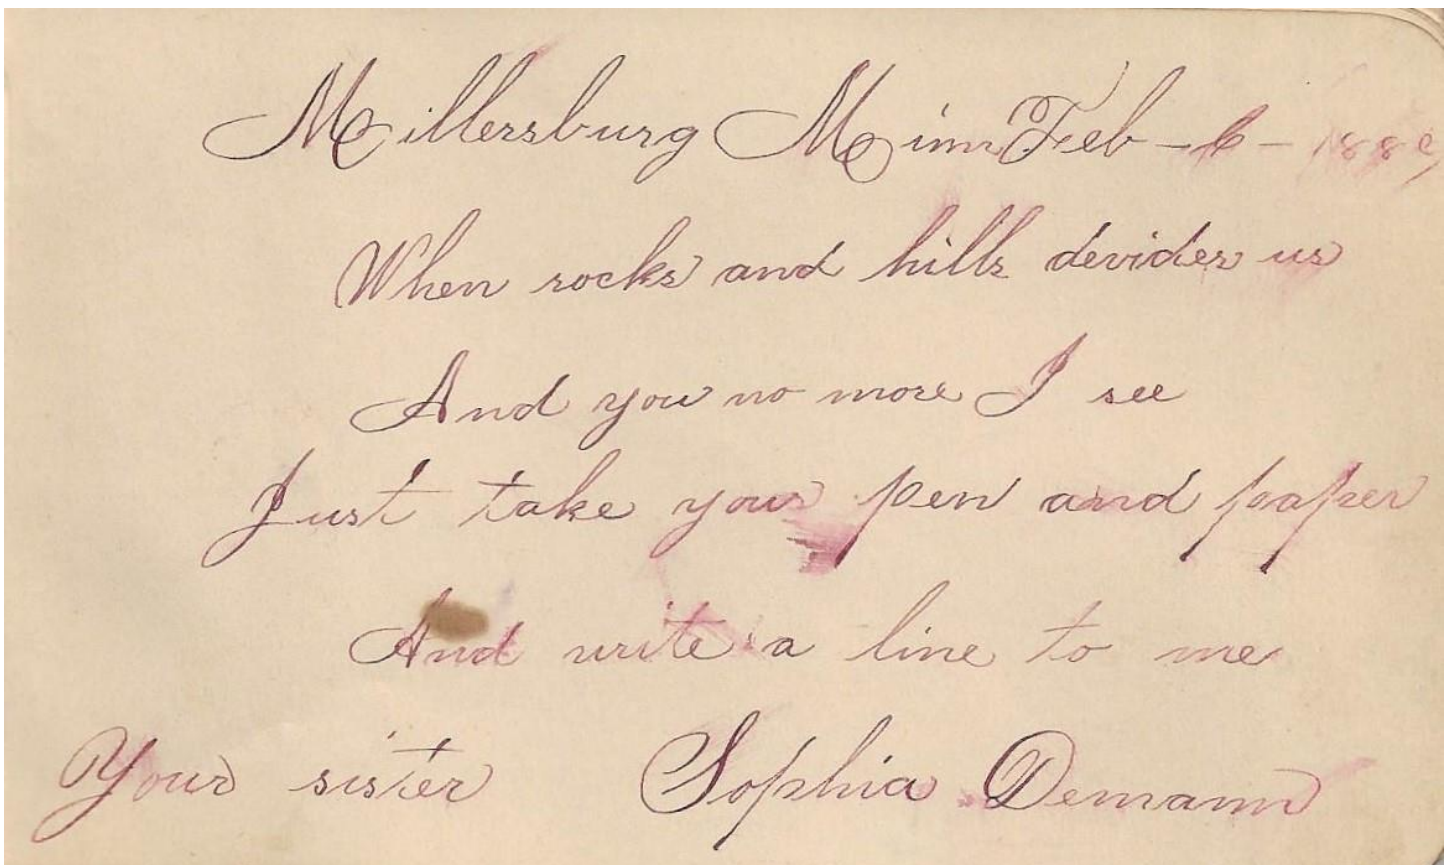 Millersburg Minn Feb - 6 - 188
When rocks and hills devides us
And you no more I see
Just take your pen and paper
And write a line to me
Your sister Sophia Demann